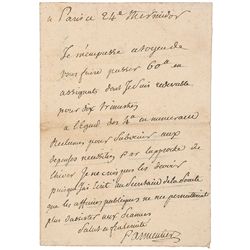 a Paris ce 24e Mersidor
Je m'empresse citoyen de
vous faire passer 60tt en
assignats dont Je suis redevable
pour dix trimestres
a l'Egard des 4tt en numeraire
Reclames pour Subvenir aux
depenses necessitées Par l'approche de
l'hiver Je ne crois pas les devoir
puisque J'ai Ecrit au Secretaire de la Societé
que les affaires publiques ne me permettaient
plus d'assister aux Seances
Salut et fraternité
Parmentier